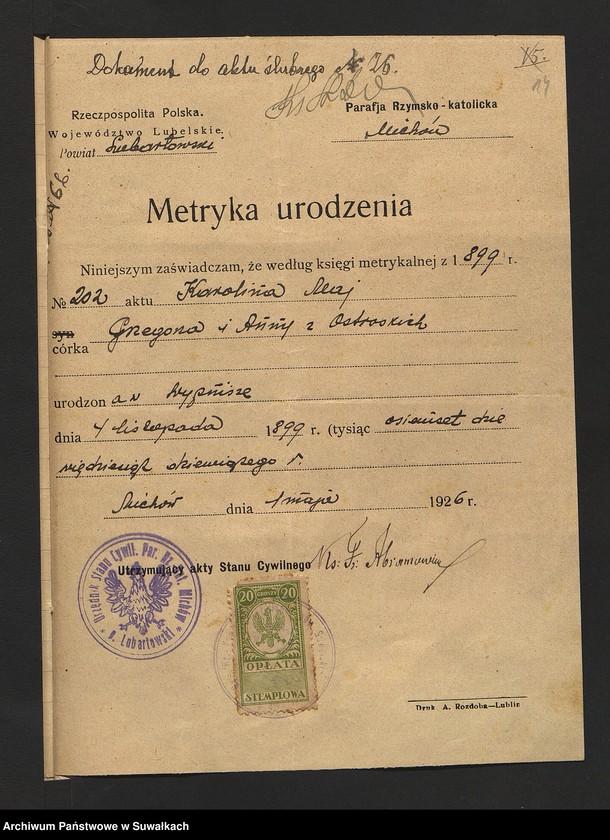 Dokument do aktu ślubnego № 26.
15.
14
Rzeczpospolita Polska.
Województwo Lubelskie.
Powiat Lubartowski
Parafja Rzymsko-katolicka
Michów
Metryka urodzenia
Niniejszym zaświadczam, że według księgi metrykalnej z 1899 r.
№ 202 aktu Karolina Maj
syn
córka Grzegorza i Anny z Ostroskich
urodzona w Wypnisze
dnia 4 listopada 1899 r. (tysiąc osiemset dzie
więdziesiąt dziewiątego r.
Michów dnia 1 maja 1926 r.
Utrzymujący akty Stanu Cywilnego Ks: Fr. Abramowicz
Urzednik Stanu Cywil. Par. Michów
p. Lubartowski
20 GROSZY 20
OPŁATA
STEMPLOWA
Druk. A. Rozdoba—Lublin
Archiwum Państwowe w Suwałkach